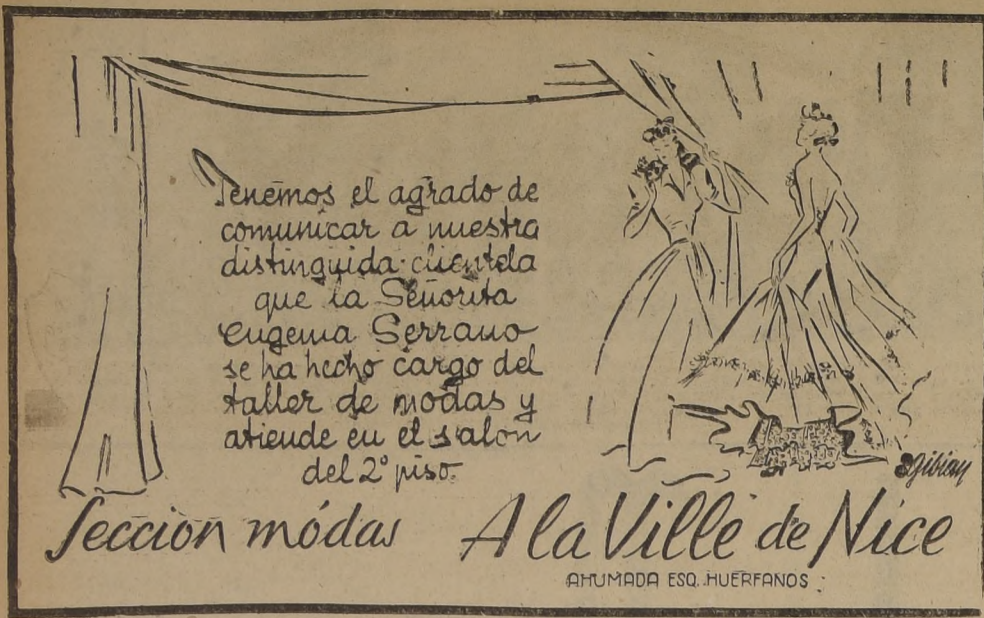 Tenemos el agrado de
comunicar a nuestra
distinguida clientela
que la Señorita
Eugenia Serrano
se ha hecho cargo del
taller de modas y
atiende en el salon
del 2º piso.
Sección módas
A la Ville de Nice
AHUMADA ESQ. HUERFANOS